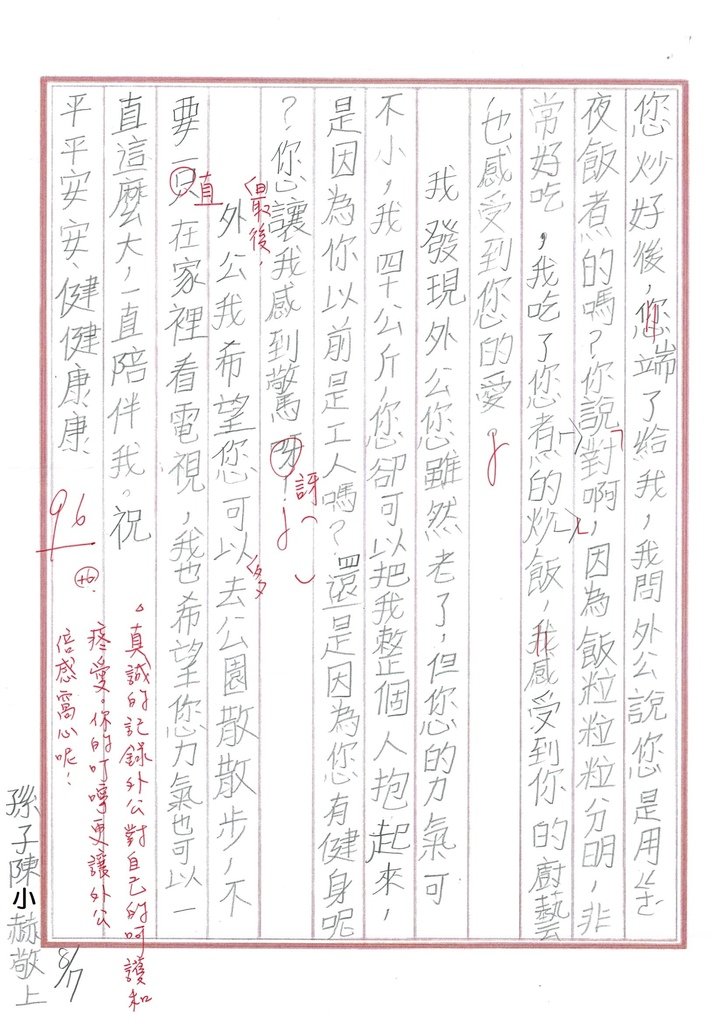 您炒好後，您端了給我，我問外公說您是用
夜飯煮的嗎？你說對啊，因為飯粒粒粒分明，非
常好吃，我吃了您煮的炒飯，我感受到你的廚藝
也感受到您的愛
我發現外公您雖然老了，但您的力氣可
不小，我四十公斤，您卻可以把我整個人抱起來，
是因為你以前是工人嗎？還是因為您有健身呢
？您讓我感到驚呀！
訝
最後，
外公我希望您可以去公園散散步，不
多
要一只在家裡看電視，我也希望您力氣也可以一
直
直這麼大，一直陪伴我。祝
平平安安、健健康康
96
+6
。真誠的記錄外公對自己的呵護和
疼愛。你的叮嚀更讓外公
倍感窩心呢！
孫子陳小赫敬上
8/7